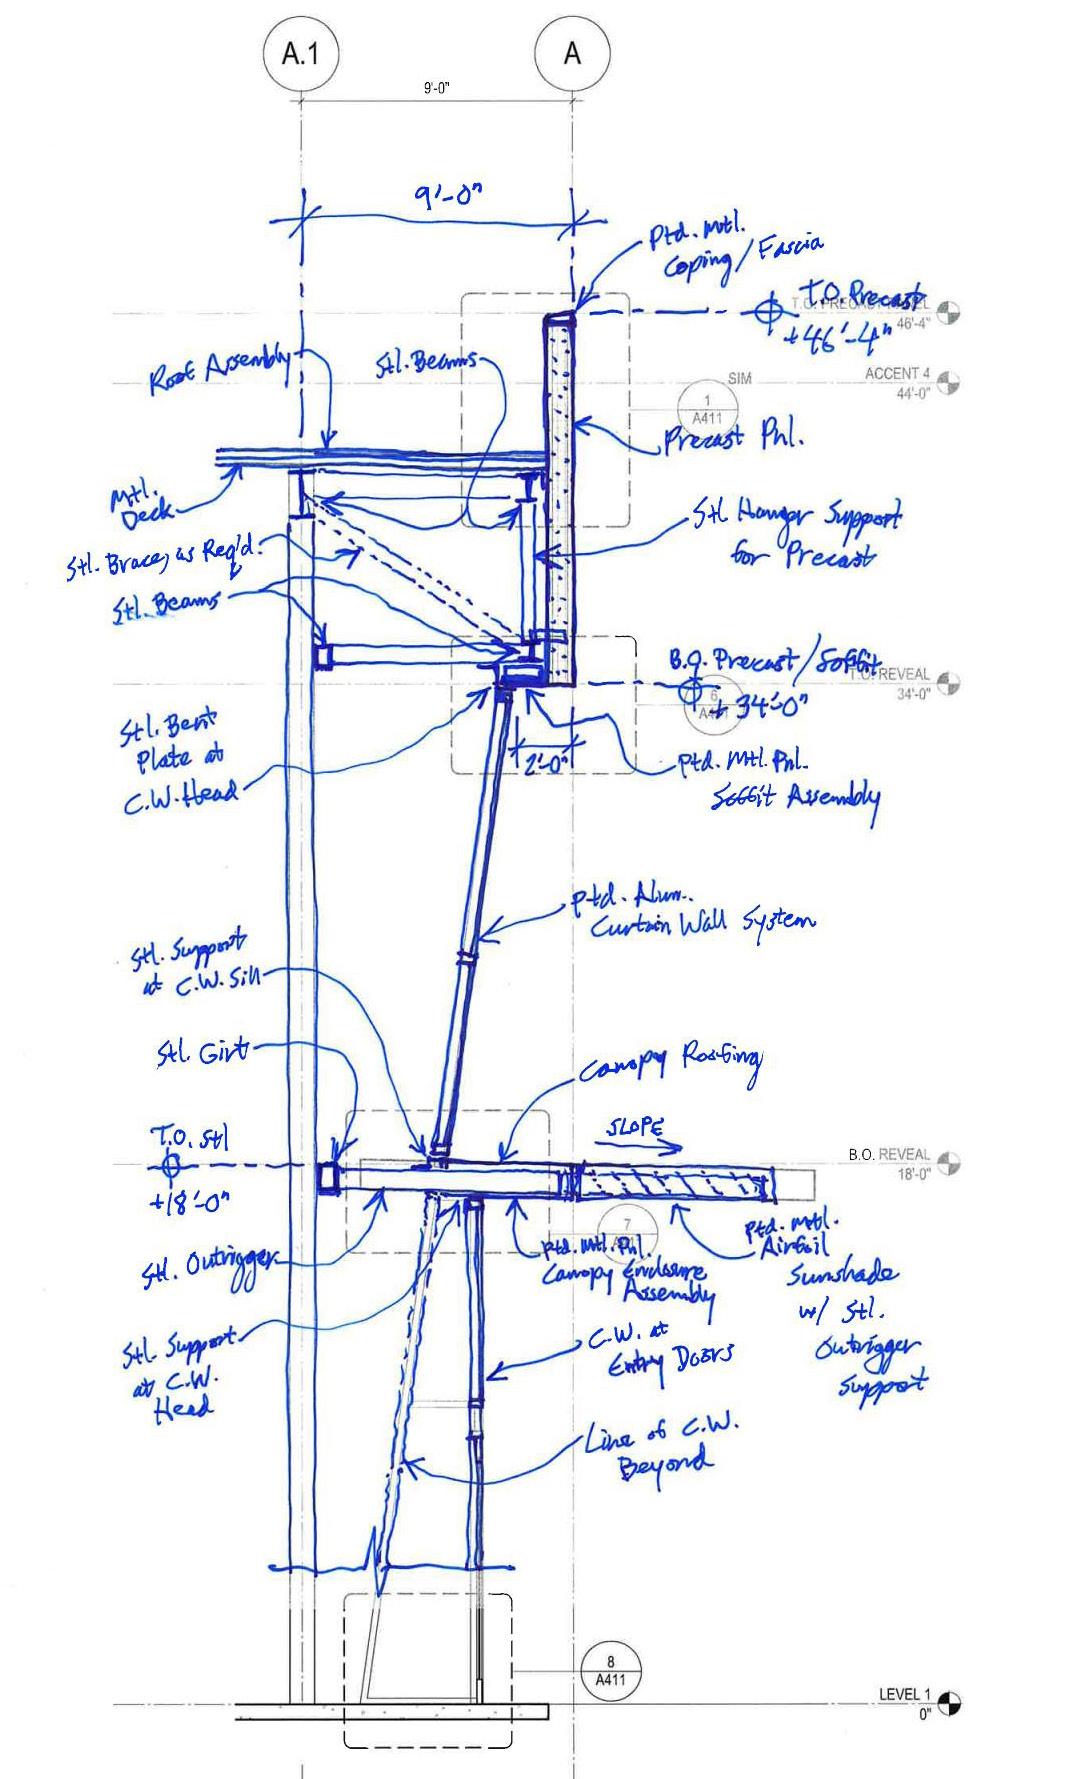 A.1
A
9'-0"
9'-0"
Ptd. Mtl.
Coping/Fascia
T.O. Precast
+46'-4"
46'-4"
Roof Assembly
Stl. Beams
SIM
ACCENT 4
44'-0"
1
A411
Precast Pnl.
Mtl.
Deck
Stl Hanger Support
for Precast
Stl. Braces as Req'd.
Stl. Beams
B.O. Precast/Soffit
T.O. REVEAL
34'-0"
6
+34'-0"
Stl. Bent
Plate at
C.W. Head
2'-0"
Ptd. Mtl. Pnl.
Soffit Assembly
Ptd. Alum.
Curtain Wall System
Stl. Support
at C.W. Sill
Stl. Girt
Canopy Roofing
SLOPE
T.O. Stl
+18'-0"
B.O. REVEAL
18'-0"
7
Stl. Outrigger
Ptd. Mtl. Pnl.
Canopy Enclosure
Assembly
Ptd. Mtl.
Airfoil
Sunshade
w/ Stl.
Outrigger
Support
Stl. Support
at C.W.
Head
C.W. at
Entry Doors
Line of C.W.
Beyond
8
A411
LEVEL 1
0"